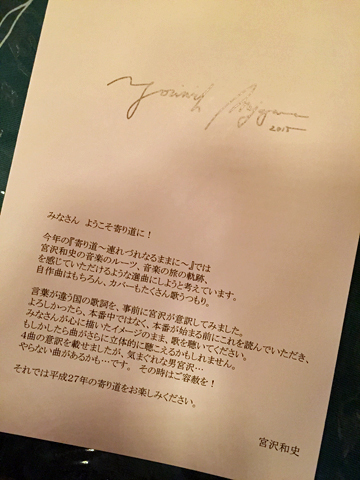 2015
みなさん ようこそ寄り道に！
今年の『寄り道〜連れづれなるままに〜』では
宮沢和史の音楽のルーツ、音楽の旅の軌跡、
を感じていただけるような選曲にしようと考えています。
自作曲はもちろん、カバーもたくさん歌うつもり。
言葉が違う国の歌詞を、事前に宮沢が意訳してみました。
よろしかったら、本番中ではなく、本番が始まる前にこれを読んでいただき、
みなさんが心に描いたイメージのまま、歌を聴いてください。
もしかしたら曲がさらに立体的に聴こえるかもしれません。
4曲の意訳を載せましたが、気まぐれな男宮沢…
やらない曲があるかも…です。 その時はご容赦を！
それでは平成27年の寄り道をお楽しみください。
宮沢和史